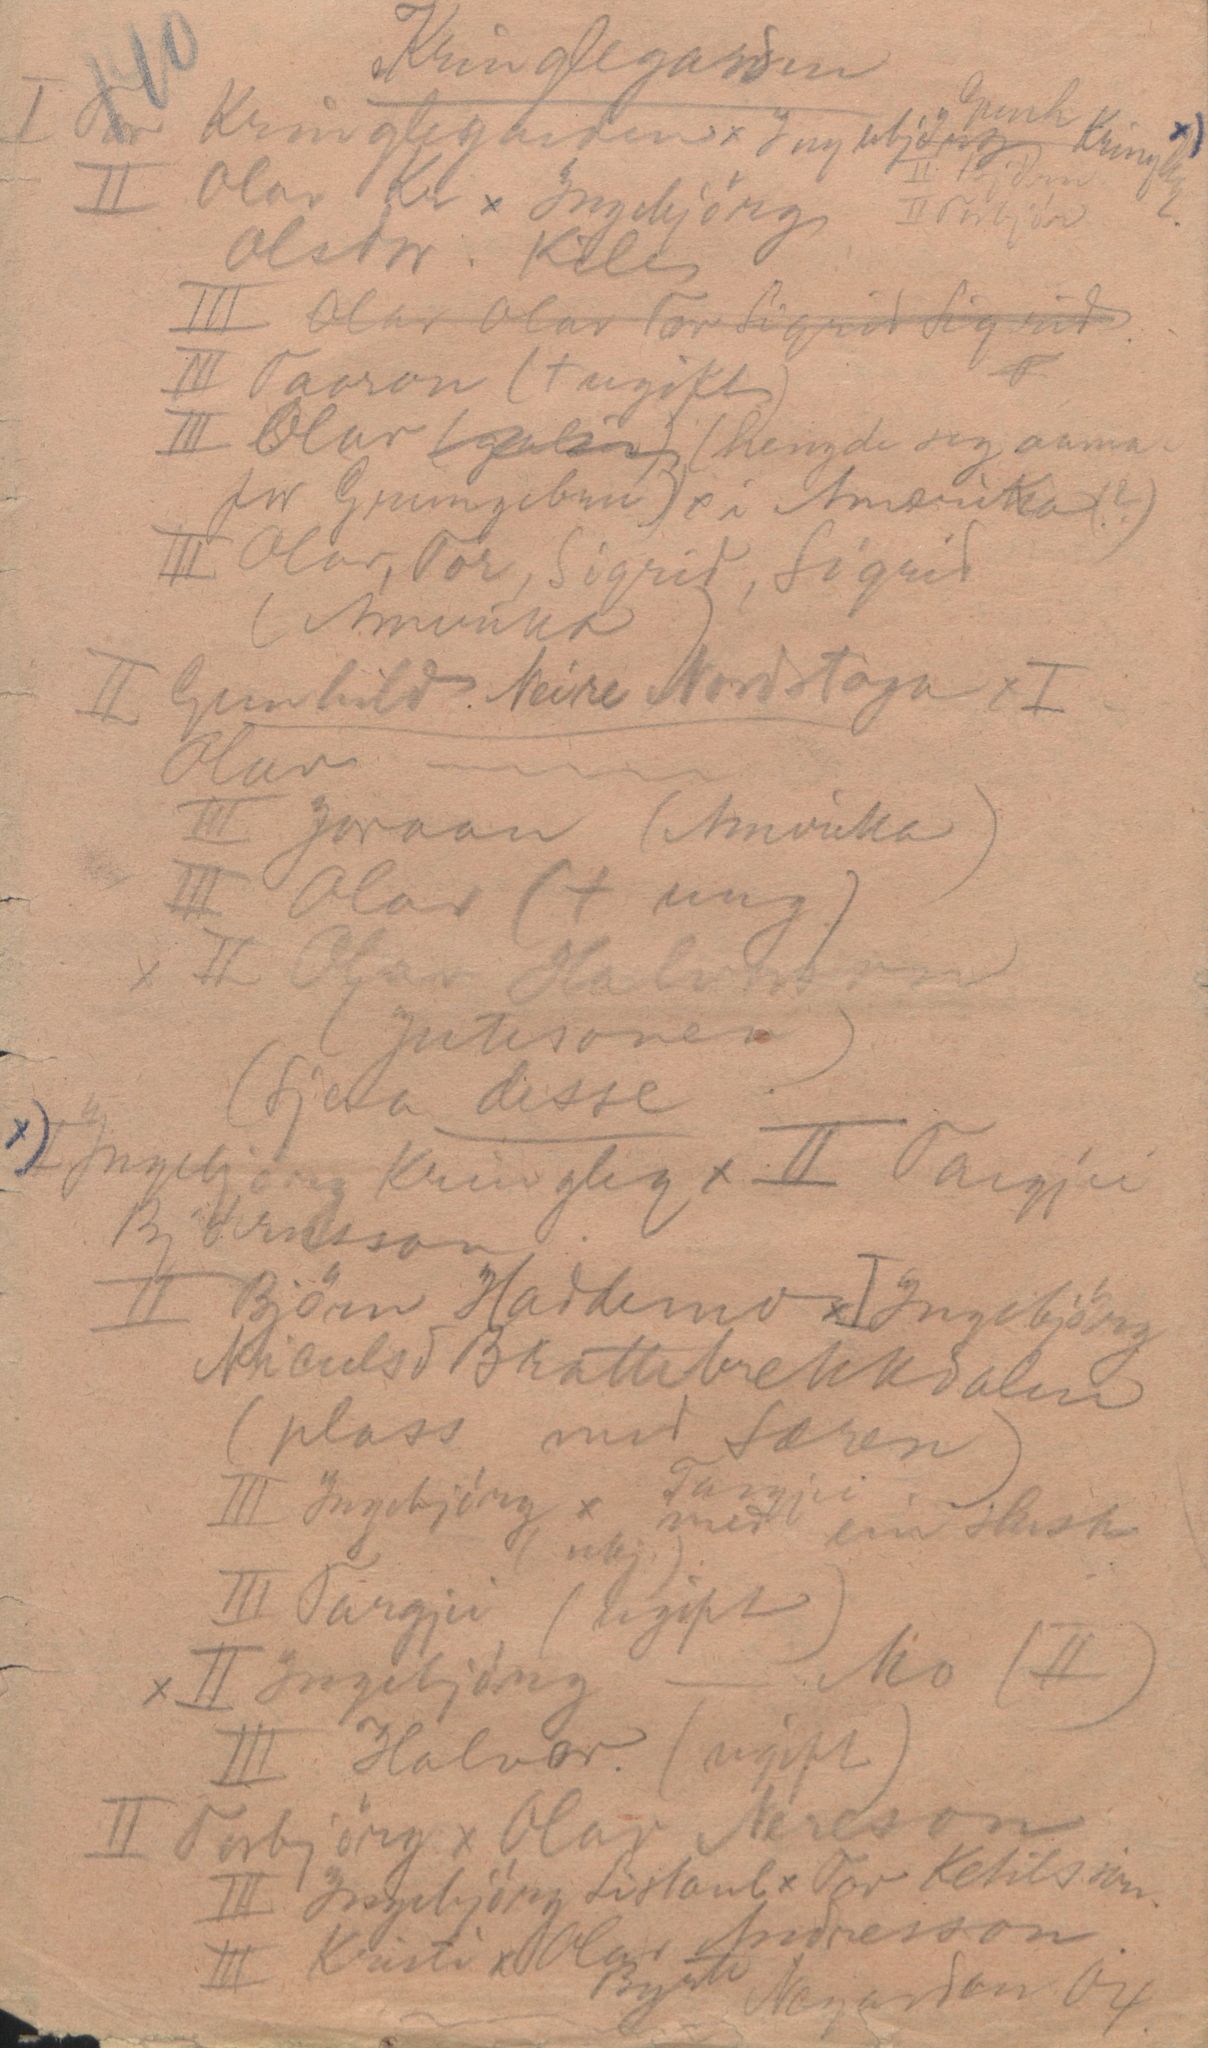 140
Kringlegarden
I Tor Kringlegarden x Ingebjörg Kringleg. x)
II Björn
II Torbjör
II Olav Kr x Ingebjörg
Olsdtr. Kile
III Olav Olav Tor Sigrid Sigrid
III Taaron (+ ugift)
III Olav (hengde seg
for ) x i Amerika (?)
III Olav, Tor, Sigrid, Sigrid
(Amerika)
II Gunhild Neire Nordstoga x I
Olav
III Joraan (Amerika)
III Olav (+ ung)
x II Olav Halvorson
(Jutesonen)
(Sjaa disse
x) I Ingebjörg Kringleg x II Targjei
Björnsson
II Björn Haddemo x I Ingebjörg
Niculsd Brattebrekkdalen
(plass med Særen)
III Ingebjörg x Targjei
med ein Husk
III Targjei (ugift)
x II Ingebjörg Mo (II)
III Halvor. (ugift)
II Torbjörg x Olav Nereson
III Ingebjörg x Tor Ketilsson
III Kristi x Olav Andresson
Byrte